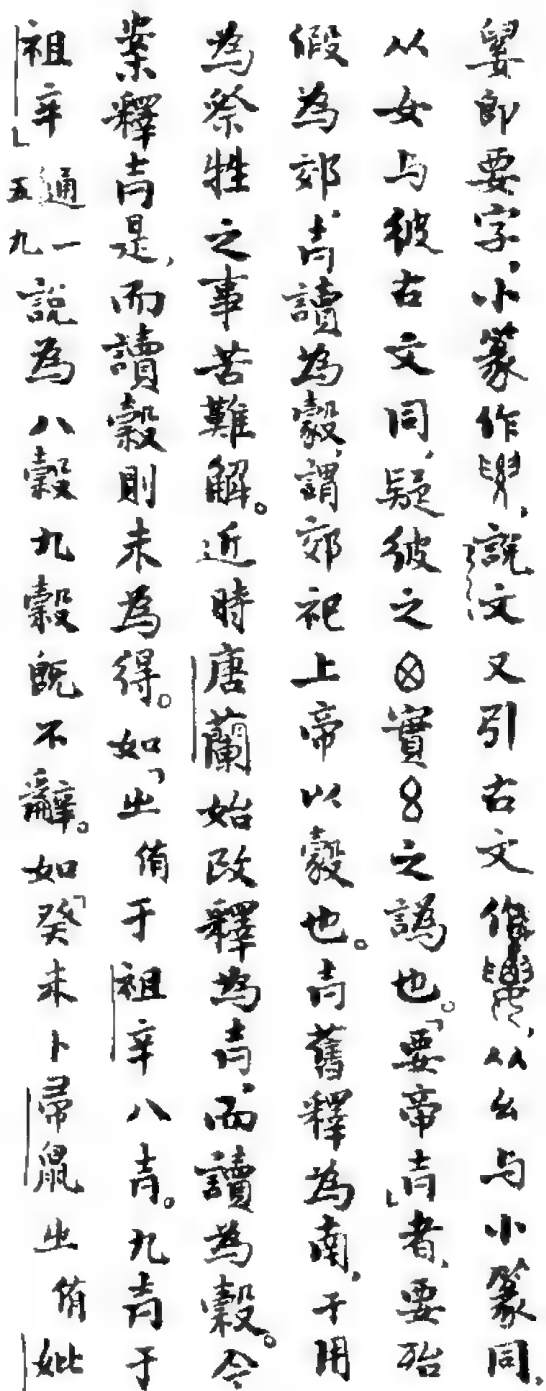 即要字,小篆作,說文又引古文作,从幺与小篆同,
从女与彼古文同,疑彼之⊗實8之譌也。「要帝𡉉」者,要殆
假為郊,𡉉讀為豰,謂郊祀上帝以豰也。𡉉舊釋為南,于用
為祭牲之事苦難解。近時唐蘭始改釋為𡉉,而讀為穀。今
案釋𡉉是,而讀穀則未為得。如「㞢侑于祖辛八𡉉。九𡉉于
祖辛」通一五九說為八穀九穀既不辭。如「癸未卜帚鼠㞢侑妣